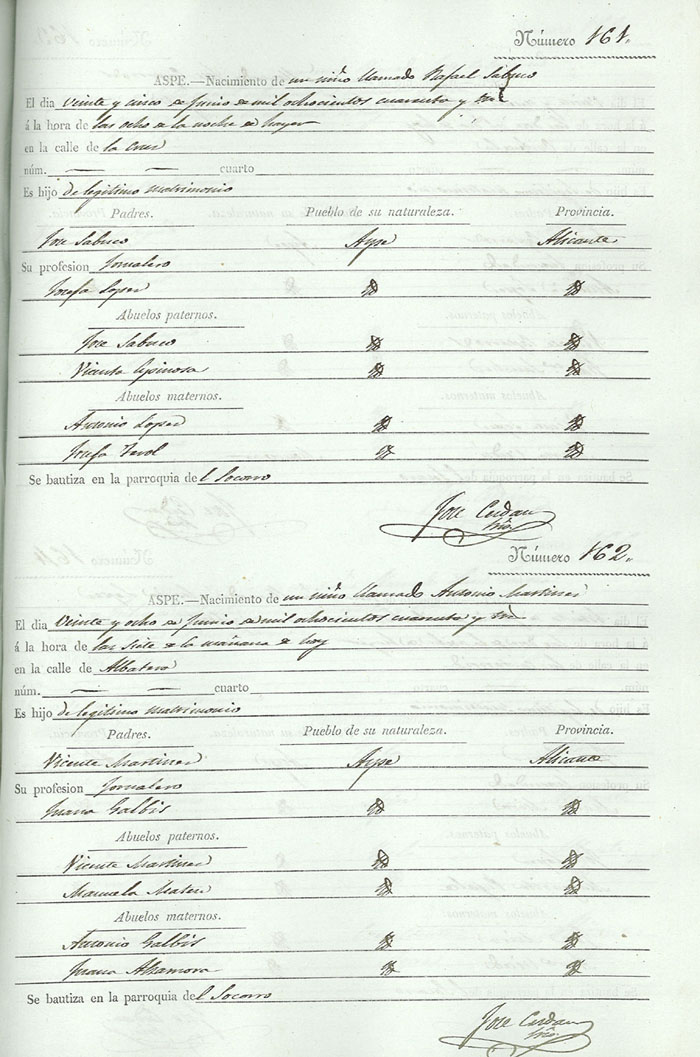 Número 161.
ASPE.—Nacimiento de un niño llamado Rafael Sabuco
El dia veinte y cinco de Junio de mil ochocientos cuarenta y tres
á la hora de las ocho de la noche de hayer
en la calle de la Cruz
núm. — — cuarto
Es hijo de legitimo matrimonio
Padres. Pueblo de su naturaleza. Provincia.
Jose Sabuco Aspe Alicante
Su profesion Jornalero
Josefa Lopez
Abuelos paternos.
Jose Sabuco
Vicenta Espinosa
Abuelos maternos.
Antonio Lopez
Josefa
Se bautiza en la parroquia del Socorro
Jose Cerdan
Número 162.
ASPE.—Nacimiento de un niño llamado Antonio Martinez
El dia veinte y ocho de Junio de mil ochocientos cuarenta y tres
á la hora de las siete de la mañana de hoy
en la calle de Albatera
núm. — — cuarto
Es hijo de legitimo matrimonio
Padres. Pueblo de su naturaleza. Provincia.
Vicente Martinez Aspe Alicante
Su profesion Jornalero
Juana Galbis
Abuelos paternos.
Vicente Martinez
Manuela Mateu
Abuelos maternos.
Antonio Galbis
Juana
Se bautiza en la parroquia del Socorro
Jose Cerdan